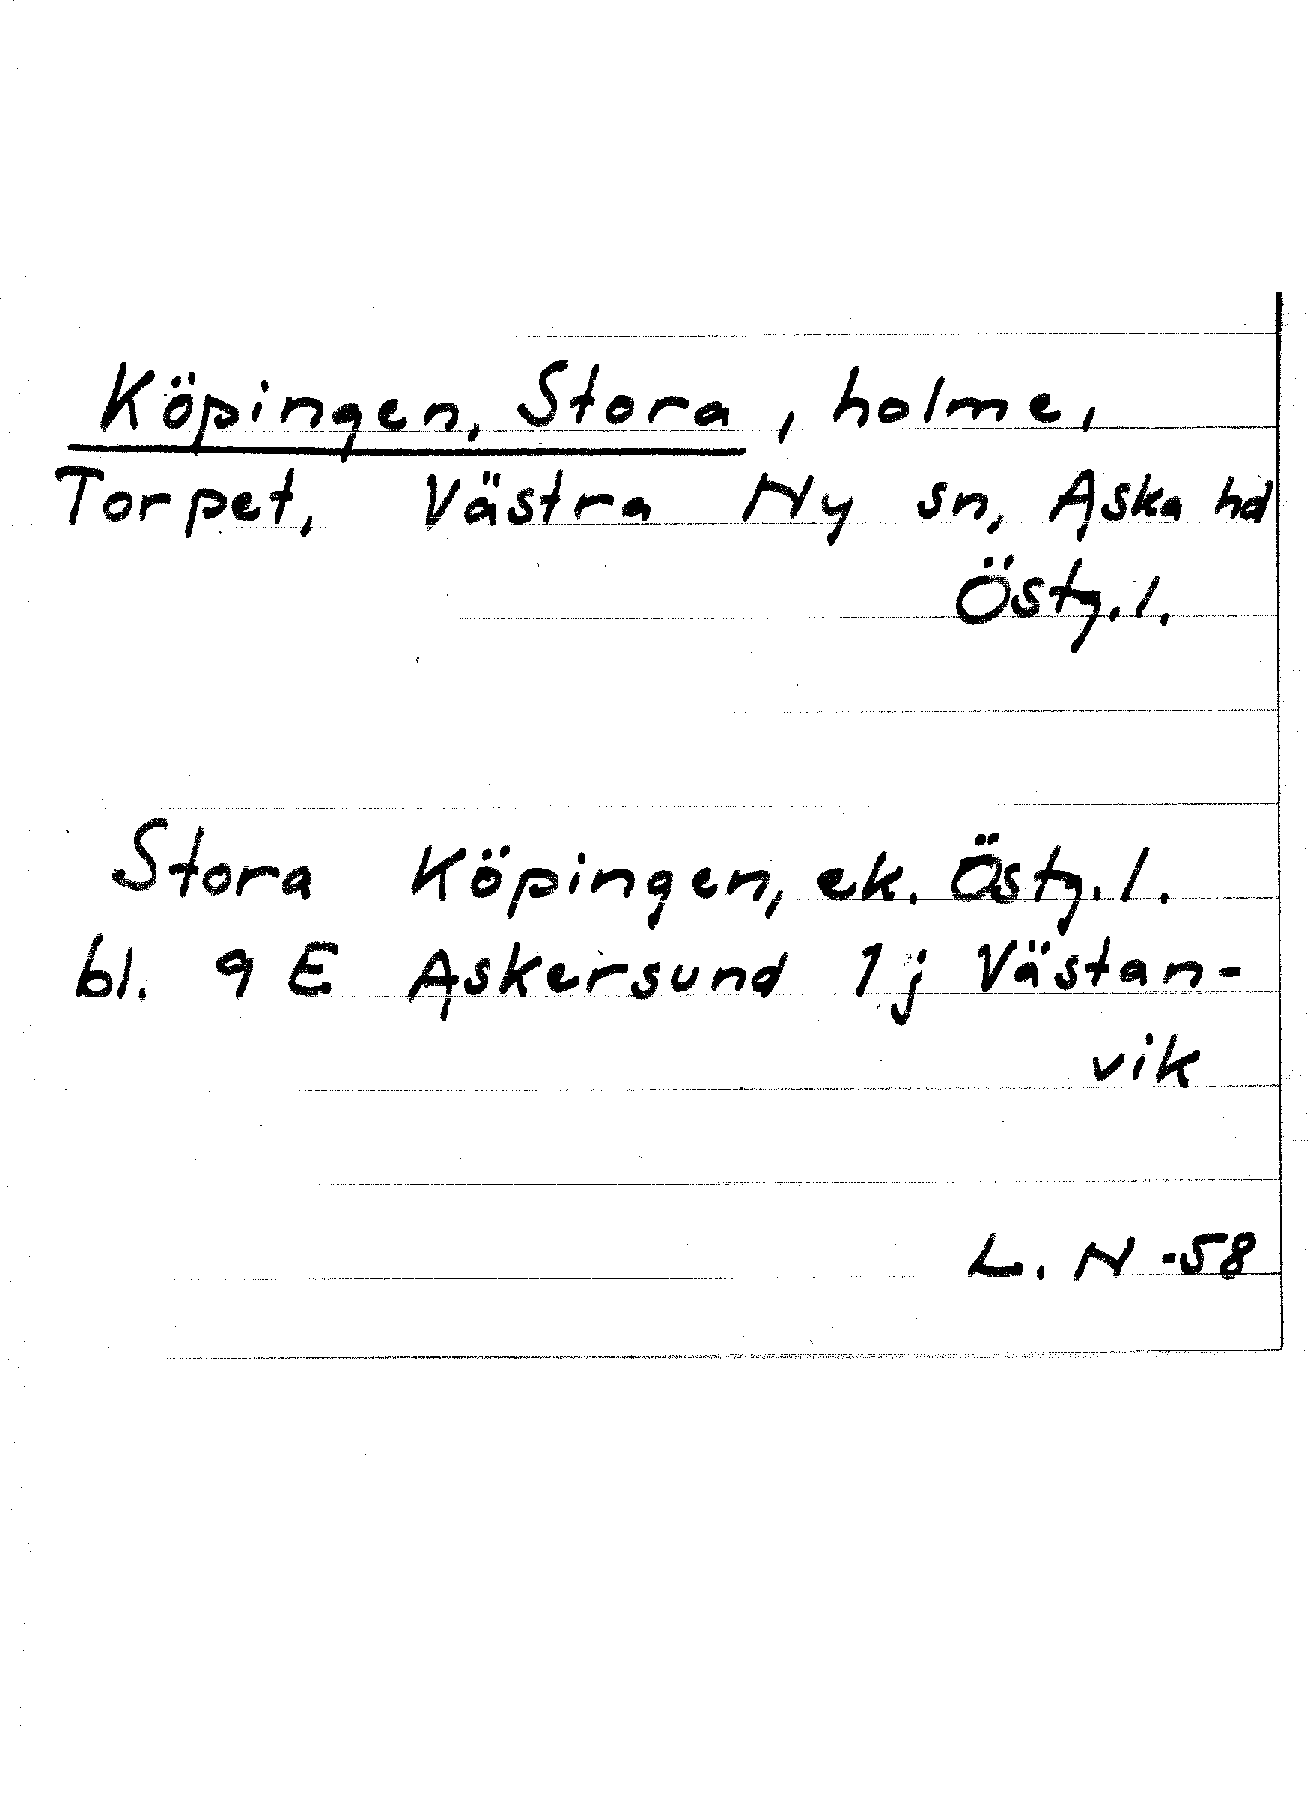 Köpingen, Stora, holme,
Torpet, Västra Ny sn, Aska hd
Östg.l.
Stora Köpingen, ek. Östg.l.
bl. 9 E Askersund 1j Västan-
vik
L. N -58